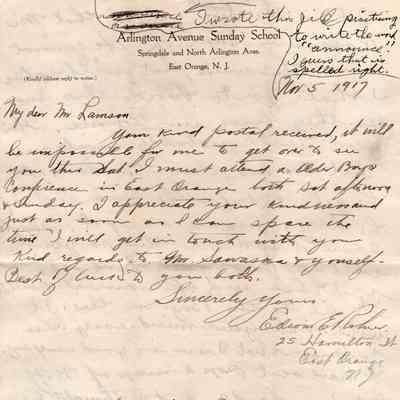 I wrote this jile practicing
to write the word
"announce."
I guess that is
spelled right.
Arlington Avenue Sunday School
Springdale and North Arlington Aves.
East Orange, N. J.
(Kindly address reply to writer.)
Nov 5 1917
My dear Mr Lamson
Your kind postal received, it will
be impossible for me to get over to see
you this Sat. I must attend a Older Boys
Conference in East Orange both Sat afternoon
& Sunday. I appreciate your kindness and
just as soon as I can spare the
time I will get in touch with you
Kind regards to Mr. & yourself.
Best of luck to you both.
Sincerely Yours
Edson E
25 Hamilton St
East Orange
N J